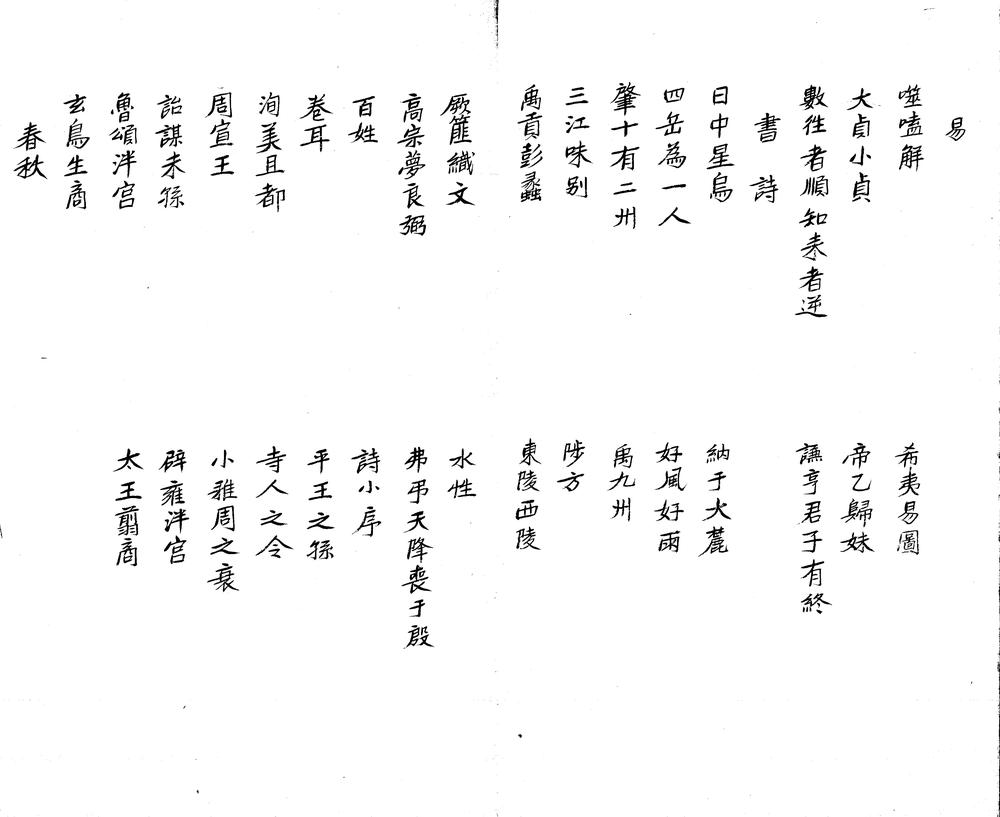 易
噬嗑解
希夷易圖
大貞小貞
帝乙歸妹
數往者順知來者逆
謙亨君子有終
書 詩
日中星鳥
納于大麓
四岳為一人
好風好雨
肇十有二州
禹九州
三江味别
陟方
禹貢彭蠡
東陵西陵
厥篚織文
水性
高宗夢良弼
弗弔天降喪于殷
百姓
詩小序
卷耳
平王之孫
洵美且都
寺人之令
周宣王
小雅周之衰
詒謀未孫
辟雍泮宮
魯頌泮宮
太王翦商
玄鳥生商
春秋